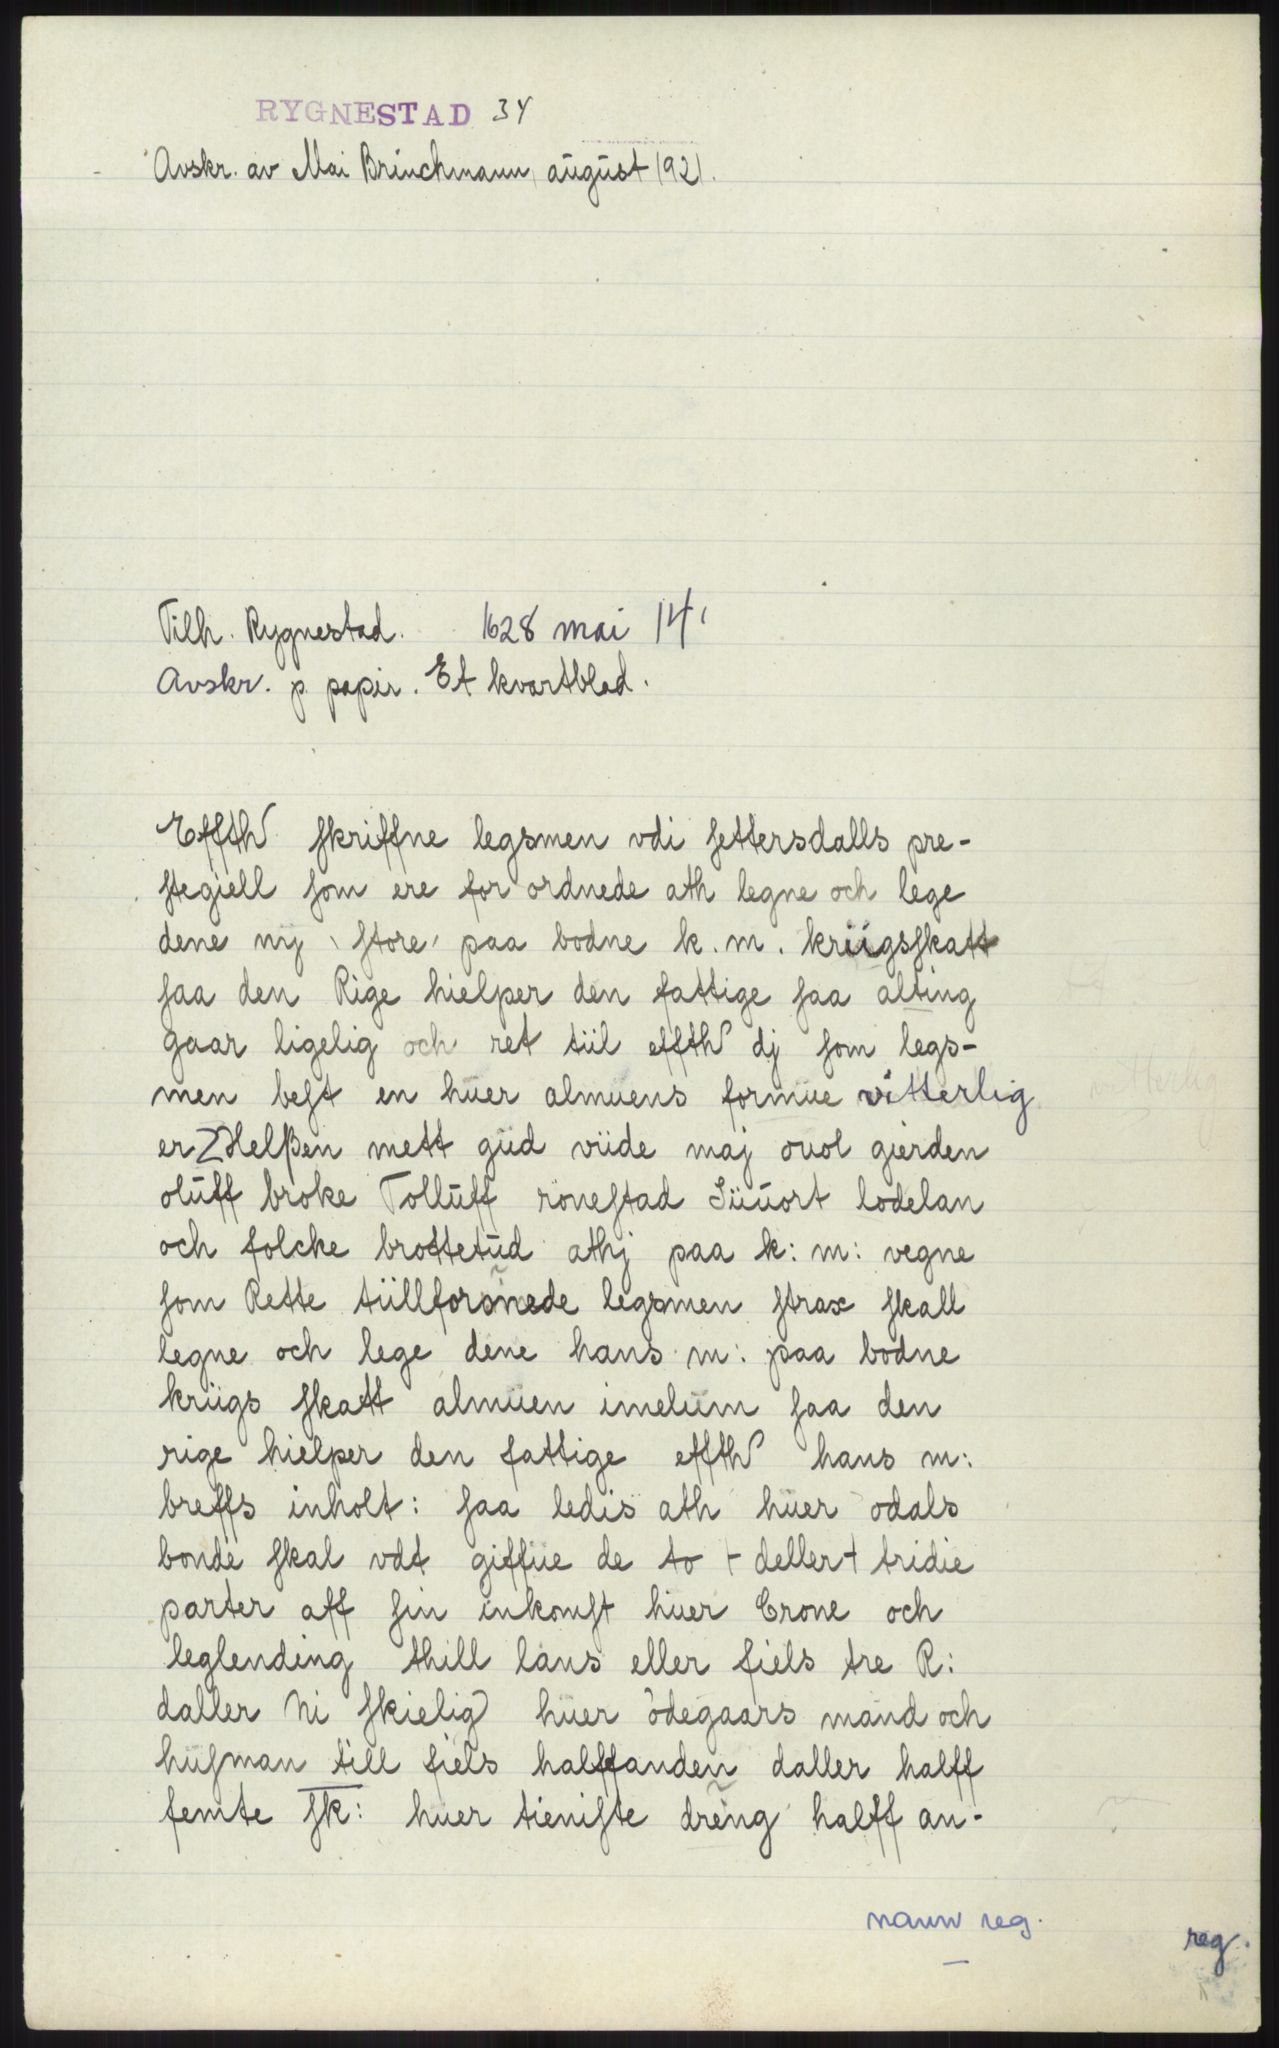 RYGNESTAD 34
Avskr. av Mai Brinchmann, august 1921.
Tilh. Rygnestad. 1628 mai 14.
Avskr. p. papir. Et kvartblad.
Effth ſkriffne legsmen vdi ſettersdalls pre-
ſtegiell ſom ere for ordnede ath legne och lege
dene nÿ ˋſtoreˊ paa bodne k. m. kriigsſkatt
ſaa den Rige hielper den fattige ſaa alting
gaar ligelig och ret tiil effth dj ſom legs-
men beſt en huer almuens formue vitterlig
er Helßen mett gud viide maj ouol gierden
oluff broke Tolluff röneſtad Siuort lodelan
och folcke brottetud athj paa k: m: vegne
ſom Rette tiillforönede legsmen ſtrax ſkall
legne och lege dene hans m: paa bodne
kriigs ſkatt almuen imelum ſaa den
rige hielper den fattige effth hans m:
breffs inholt: ſaa ledis ath huer odals
bonde ſkal vdt giffue de to + deller + tridie
parter aff ſin inkomſt huer Crone och
leglending thill lans eller fiels tre R:
daller Ni ſkielig huer ödegaars mand och
huſman till fiels halffanden daller halff
femte ſk: huer tieniſte dreng halff an-
navn reg.
reg.